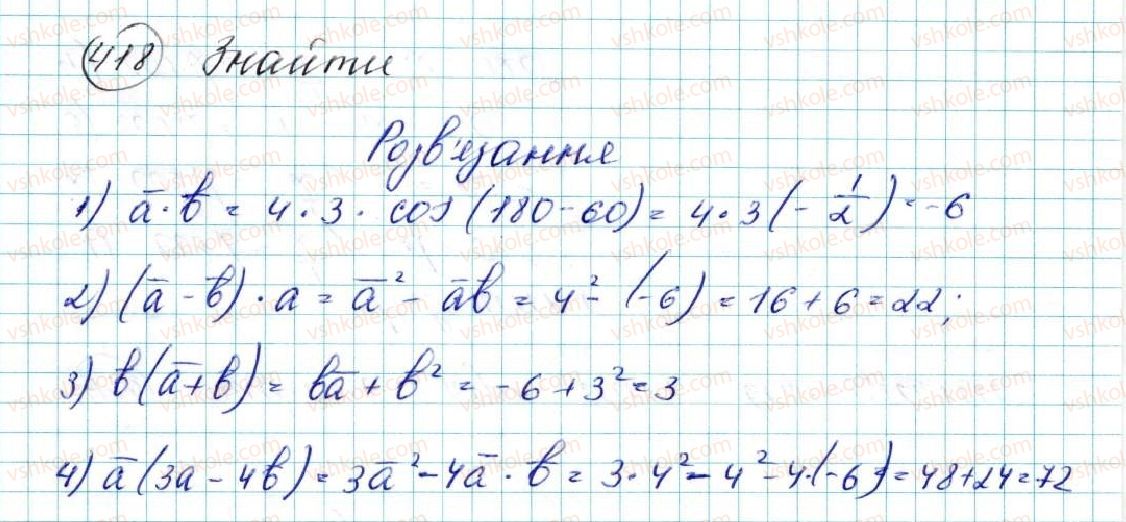 418 Знайти
Розв'язання
1) a̅·b̅ = 4·3·cos(180-60) = 4·3(-1/2) = -6
2) (a̅ - b̅)·a = a̅² - a̅b̅ = 4² - (-6) = 16 + 6 = 22;
3) b(a̅+b) = ba̅ + b² = -6 + 3² = 3
4) a̅(3a - 4b) = 3a̅² - 4a̅·b̅ = 3·4² - 4² - 4·(-6) = 48+24=72